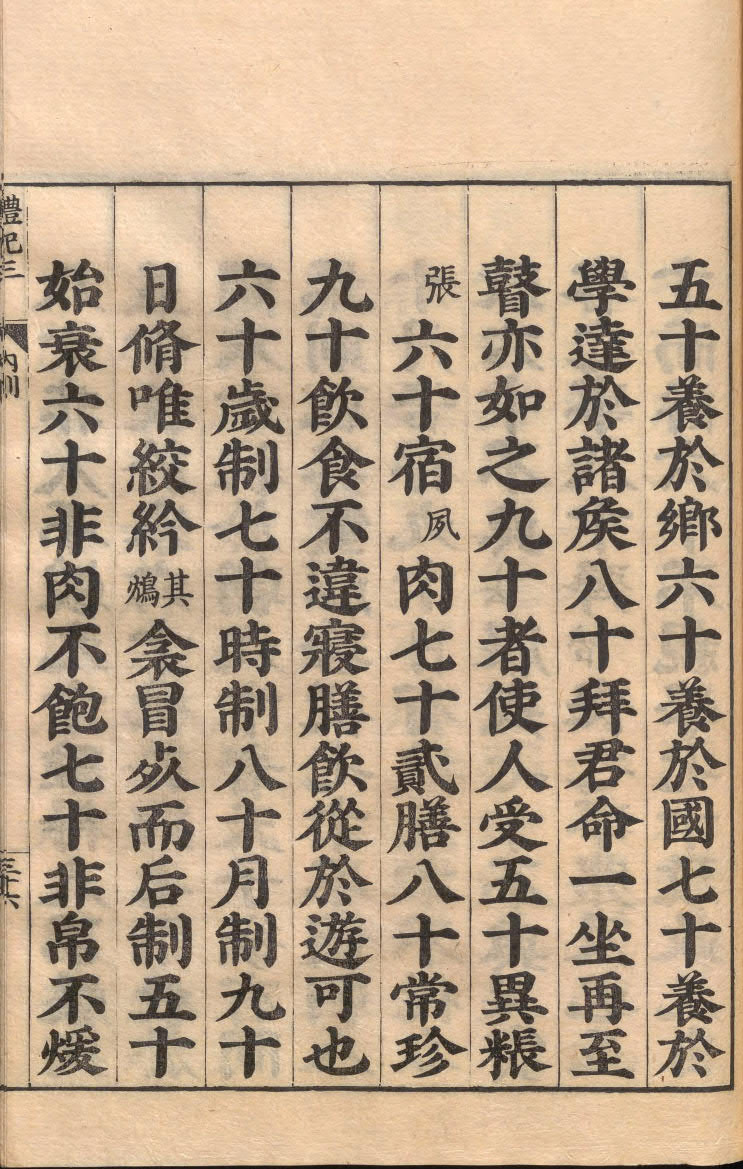 五十養於鄉六十養於國七十養於
學達於諸矦八十拜君命一坐再至
瞽亦如之九十者使人受五十異粻
張六十宿夙肉七十貳膳八十常珍
九十飲食不違寢膳飲從於遊可也
六十歲制七十時制八十月制九十
日脩唯絞紟其鴆衾冒㱙而后制五十
始衰六十非肉不飽七十非帛不煖
禮記三 內則 三十六